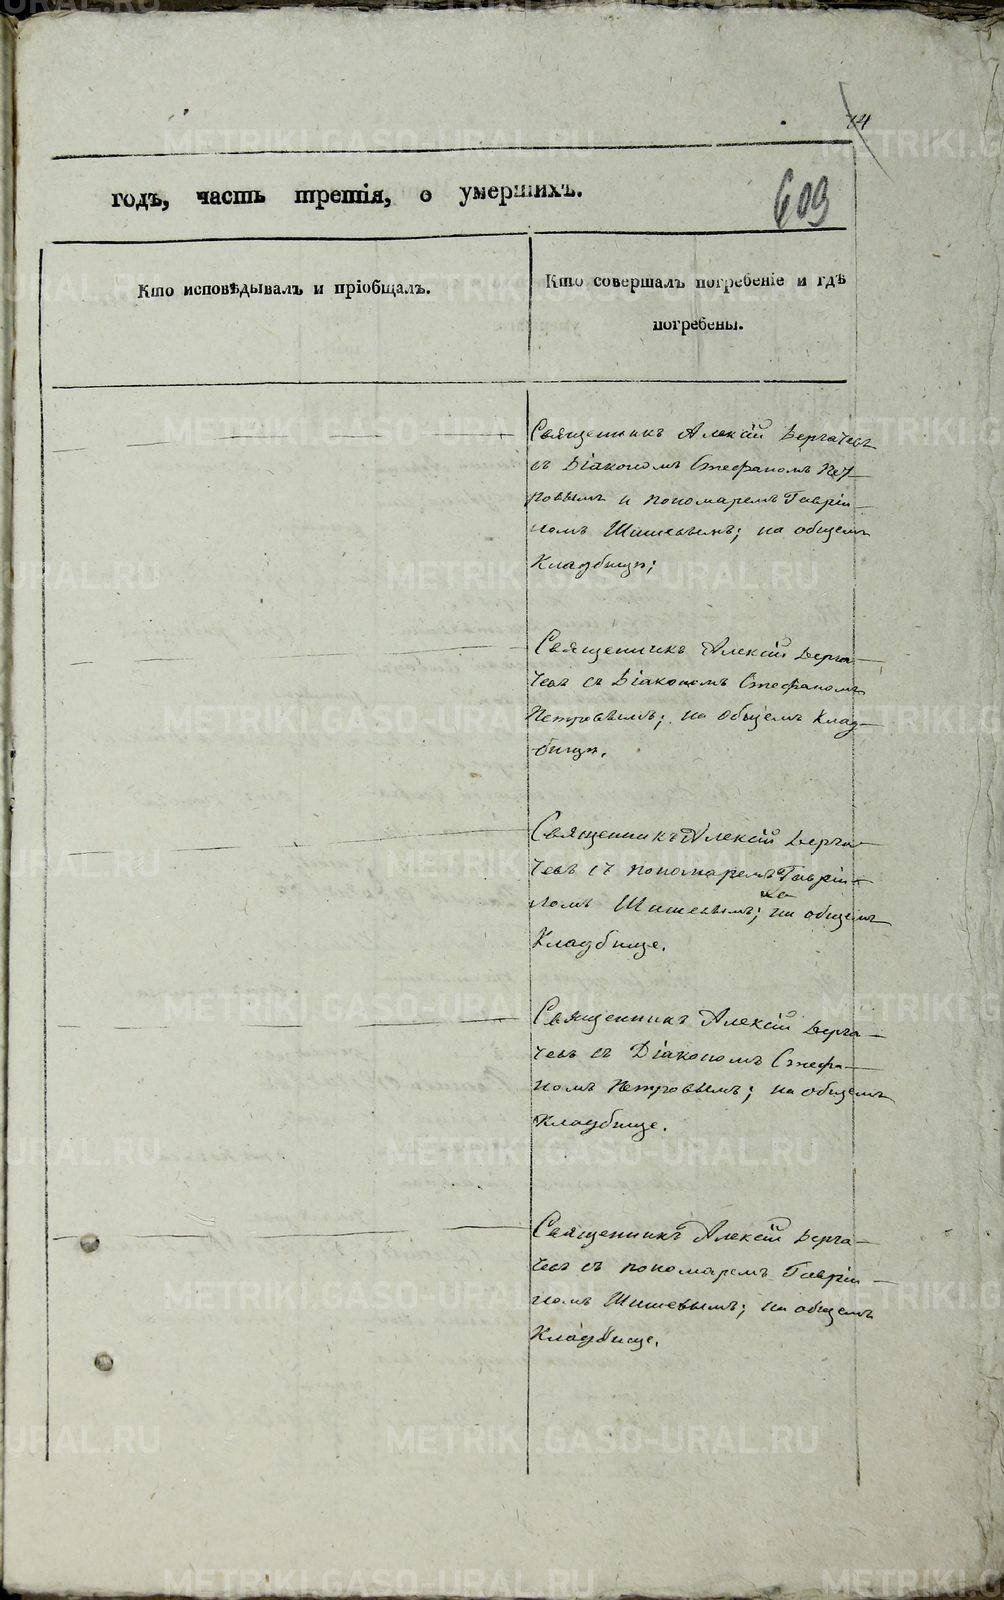 14
годъ, часть третія, о умершихъ.
609
Кто исповѣдывалъ и пріобщалъ.
Кто совершалъ погребеніе и гдѣ
погребены.
Священникъ Алексій Дергачевъ
съ Діакономъ Стефаномъ Пет-
ровымъ и пономаремъ Гаврiи-
ломъ Шишевымъ; на общемъ
Кладбищѣ;
Священникъ Алексій Дерга-
чевъ съ Діакономъ Стефаномъ
Петровымъ; на общемъ Клад-
бищѣ.
Священникъ Алексій Дерга-
чевъ съ пономаремъ Гаврiи-
ломъ Шишевымъ; на общемъ
Кладбище.
Священникъ Алексій Дерга-
чевъ съ Діакономъ Стефа-
номъ Петровымъ; на общемъ
Кладбище.
Священникъ Алексій Дерга-
чевъ съ пономаремъ Гаврiи-
ломъ Шишевымъ; на общемъ
Кладбище.
METRIKI.GASO-URAL.RU